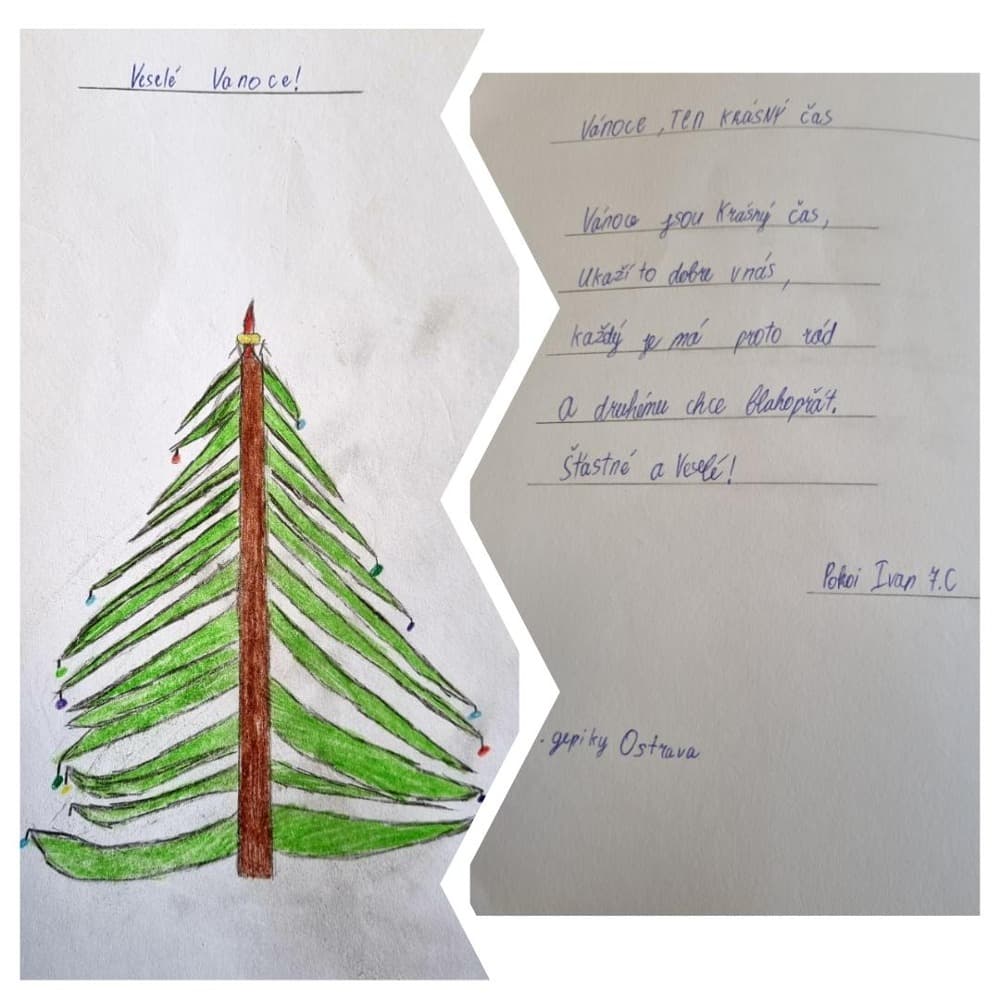 Veselé Vanoce!
Vánoce, ten krásný čas
Vánoce jsou Krásný čas,
Ukaží to dobre v nás,
každý je má proto rád
a druhému chce blahopřát.
Šťastné a Veselé!
Pokoi Ivan 7.C
Ostrava